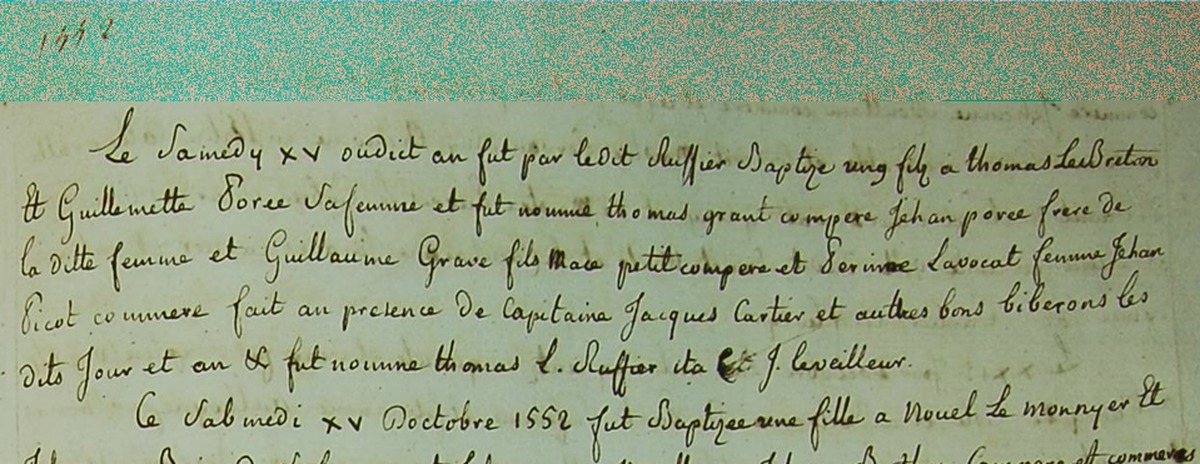 1552
Le Samedy xv oudict an fut par ledit Ruffier Baptize ung filz a thomas Le Breton
Et Guillemette Poree Sa femme et fut nomme thomas grant compere Jehan poree frere de
la ditte femme et Guillaume Grave fils Mace petit compere et Perinne Lavocat femme Jehan
Picot commere fait au presence de Capitaine Jacques Cartier et autres bons biberons les
dits Jour et an & fut nomme thomas L. Ruffier ita J. leveilleur.
Ce Sabmedi xv Doctobre 1552 fut Baptizee une fille a Nouel Le monnyer Et
et commeres